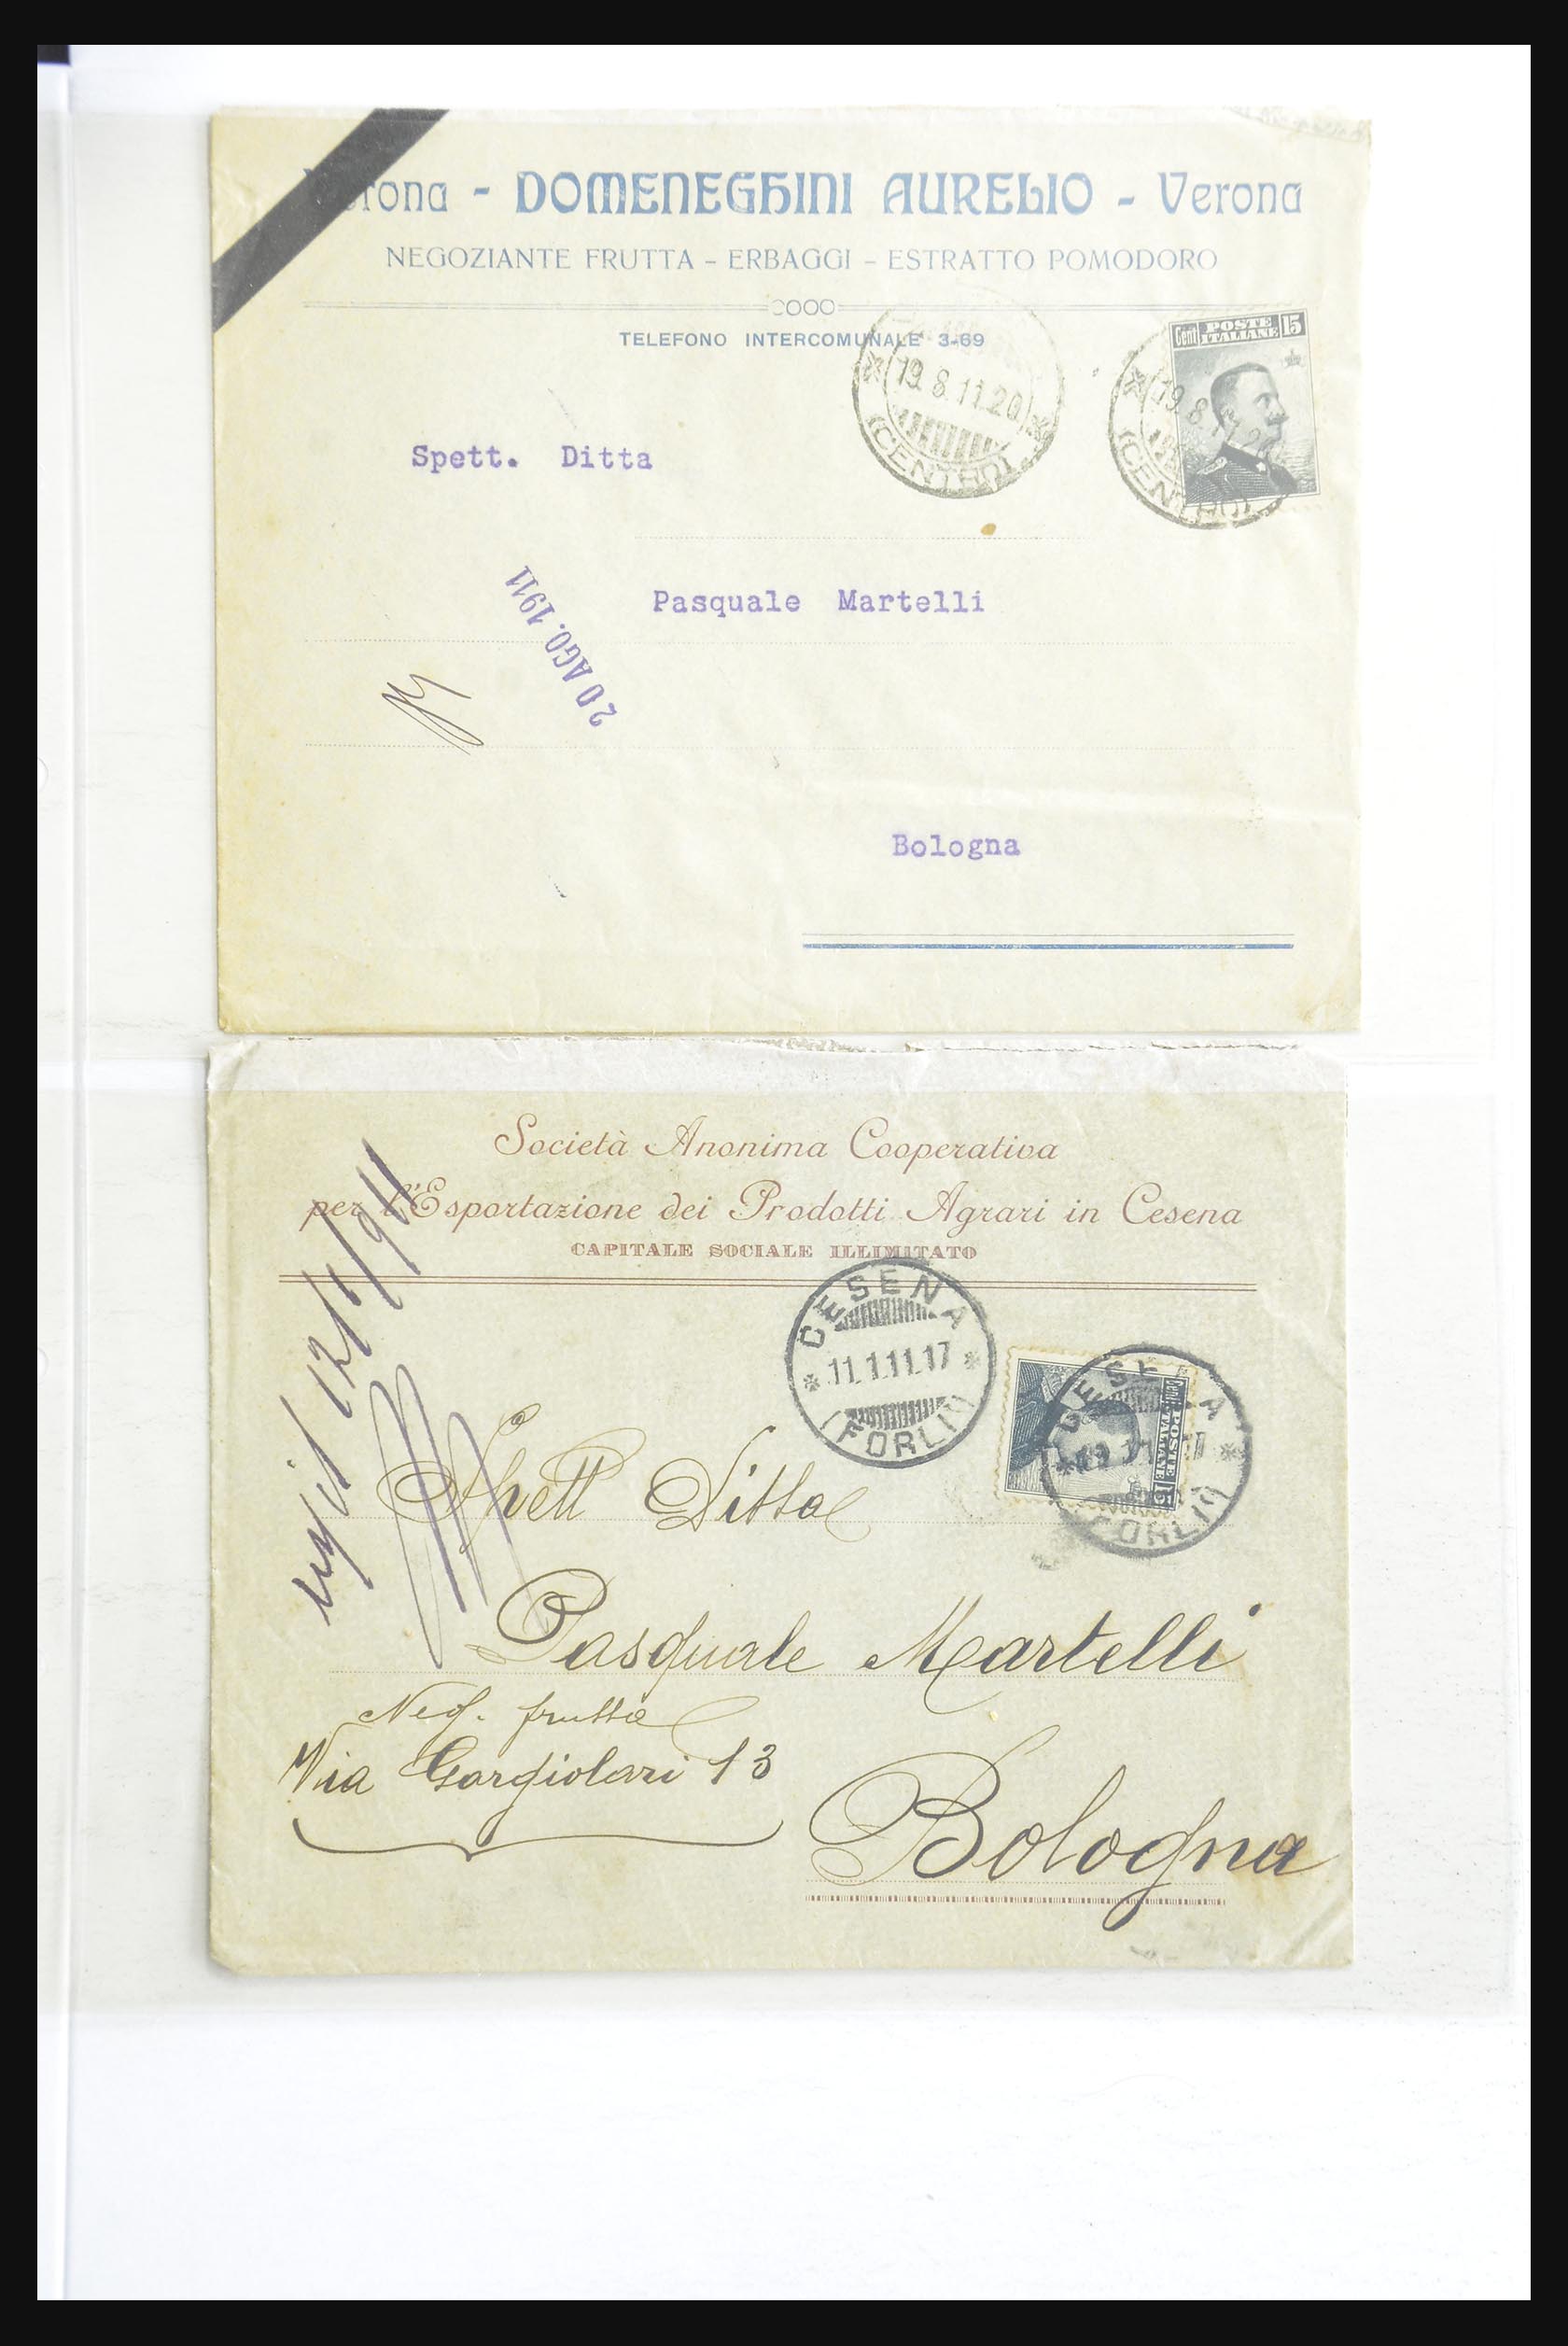 rona - DOMENEGHINI AURELIO - Verona
NEGOZIANTE FRUTTA - ERBAGGI - ESTRATTO POMODORO
TELEFONO INTERCOMUNALE 3-69
19.8.11.20
(CENTRO)
Cent POSTE ITALIANE 15
19.8.11.20
(CENTRO)
Spett. Ditta
Pasquale Martelli
20 AGO. 1911
Bologna
Società Anonima Cooperativa
per l'Esportazione dei Prodotti Agrari in Cesena
CAPITALE SOCIALE ILLIMITATO
CESENA
11.1.11.17
(FORLI)
Cent. POSTE ITALIANE 15
CESENA
(FORLI)
Spett Ditta
Pasquale Martelli
Neg. frutta
Via Gargiolari 13
Bologna